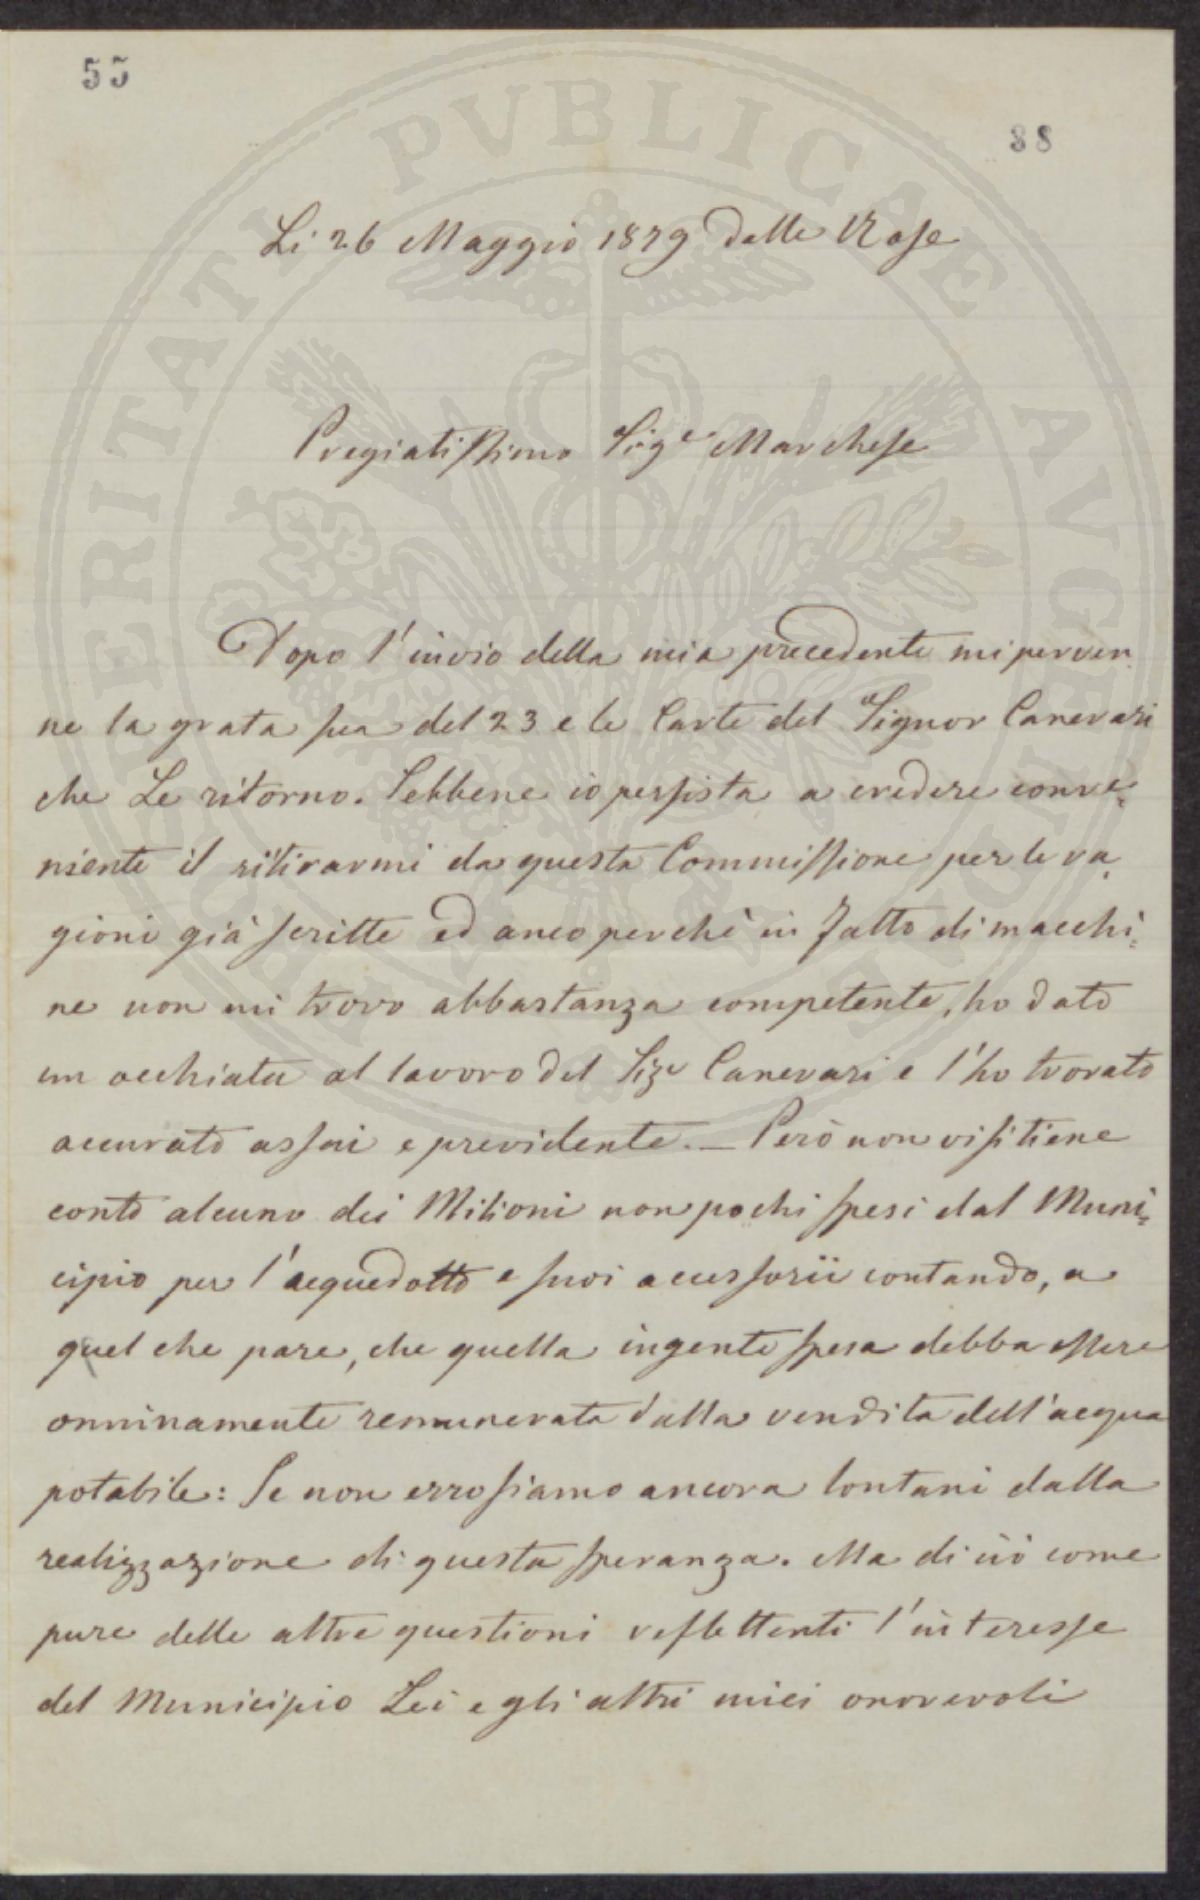 55
88
Li 26 Maggio 1879 dalle Rose
Pregiatissimo Sigr Marchese
Dopo l'invio della mia precedente mi perven
ne la grata sua del 23 e le Carte del Signor Canevari
che Le ritorno. Sebbene io persista a credere conve=
niente il ritirarmi da questa Commissione per le ra=
gioni già scritte ed anco perchè in fatto di macchi=
ne non mi trovo abbastanza competente, ho dato
un occhiata al lavoro del Sigr Canevari e l'ho trovato
accurato assai e previdente. — Però non vi si tiene
conto alcuno dei Milioni non pochi spesi dal Muni=
cipio per l'acquedotto e suoi accessorii contando, a
quel che pare, che quella ingente spesa debba essere
onninamente remunerata dalla vendita dell'acqua
potabile: Se non erro siamo ancora lontani dalla
realizzazione di questa speranza. Ma di ciò come
pure delle altre questioni reflettenti l'interesse
del Municipio Lei e gli altri miei onorevoli
PERITATI PVBLICAE AVGENDAE